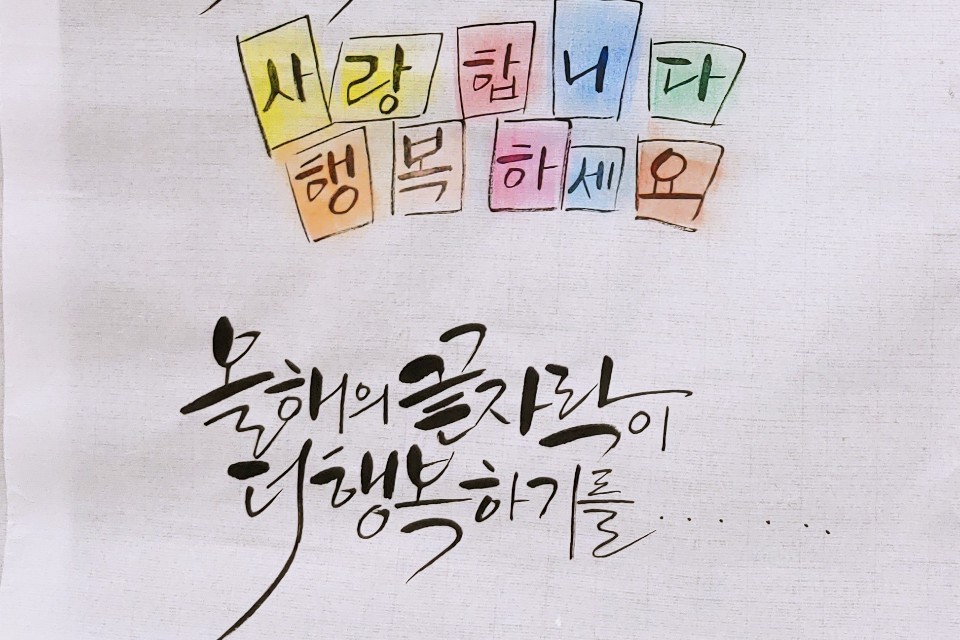 사랑합니다
행복하세요
올해의 글자락이
더 행복하기를.......